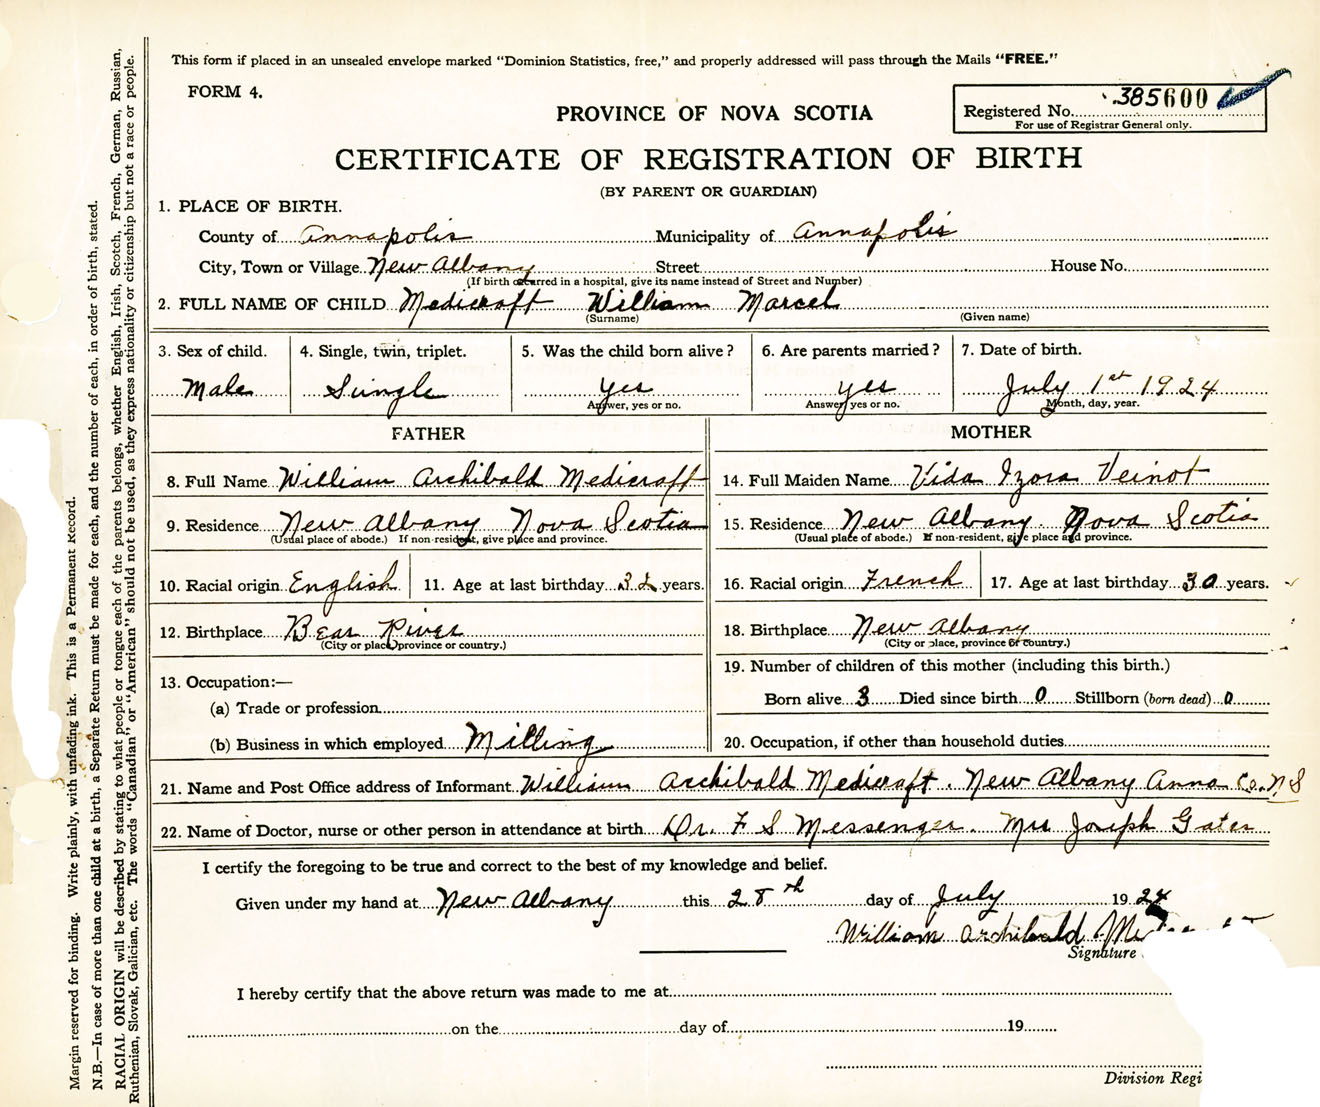 This form if placed in an unsealed envelope marked "Dominion Statistics, free," and properly addressed will pass through the Mails "FREE."
FORM 4.
PROVINCE OF NOVA SCOTIA
Registered No. 385600
For use of Registrar General only.
CERTIFICATE OF REGISTRATION OF BIRTH
(BY PARENT OR GUARDIAN)
1. PLACE OF BIRTH.
County of Annapolis Municipality of Annapolis
City, Town or Village New Albany Street House No.
(If birth occurred in a hospital, give its name instead of Street and Number)
2. FULL NAME OF CHILD Medicraft William Marcel
(Surname) (Given name)
3. Sex of child. 4. Single, twin, triplet. 5. Was the child born alive? 6. Are parents married? 7. Date of birth.
Male Single yes yes July 1st 1924
Answer, yes or no. Answer yes or no. Month, day, year.
FATHER MOTHER
8. Full Name William Archibald Medicraft 14. Full Maiden Name Vida Izora Veinot
9. Residence New Albany Nova Scotia 15. Residence New Albany. Nova Scotia
(Usual place of abode.) If non-resident, give place and province. (Usual place of abode.) If non-resident, give place and province.
10. Racial origin English 11. Age at last birthday 32 years. 16. Racial origin French 17. Age at last birthday 30 years.
12. Birthplace Bear River 18. Birthplace New Albany
(City or place, province or country.) (City or place, province or country.)
13. Occupation:— 19. Number of children of this mother (including this birth.)
(a) Trade or profession Born alive 3 Died since birth 0 Stillborn (born dead) 0
(b) Business in which employed Milling 20. Occupation, if other than household duties
21. Name and Post Office address of Informant William Archibald Medicraft. New Albany Anna Co. N S
22. Name of Doctor, nurse or other person in attendance at birth Dr. F S Messenger. Mrs Joseph Gates
I certify the foregoing to be true and correct to the best of my knowledge and belief.
Given under my hand at New Albany this 28th day of July 1924
William Archibald
Signature
I hereby certify that the above return was made to me at
on the day of 19
Division Regi
Margin reserved for binding. Write plainly, with unfading ink. This is a Permanent Record.
N.B.—In case of more than one child at a birth, a Separate Return must be made for each, and the number of each, in order of birth, stated.
RACIAL ORIGIN will be described by stating to what people or tongue each of the parents belongs, whether English, Irish, Scotch, French, German, Russian,
Ruthenian, Slovak, Galician, etc. The words "Canadian" or "American" should not be used, as they express nationality or citizenship but not a race or people.